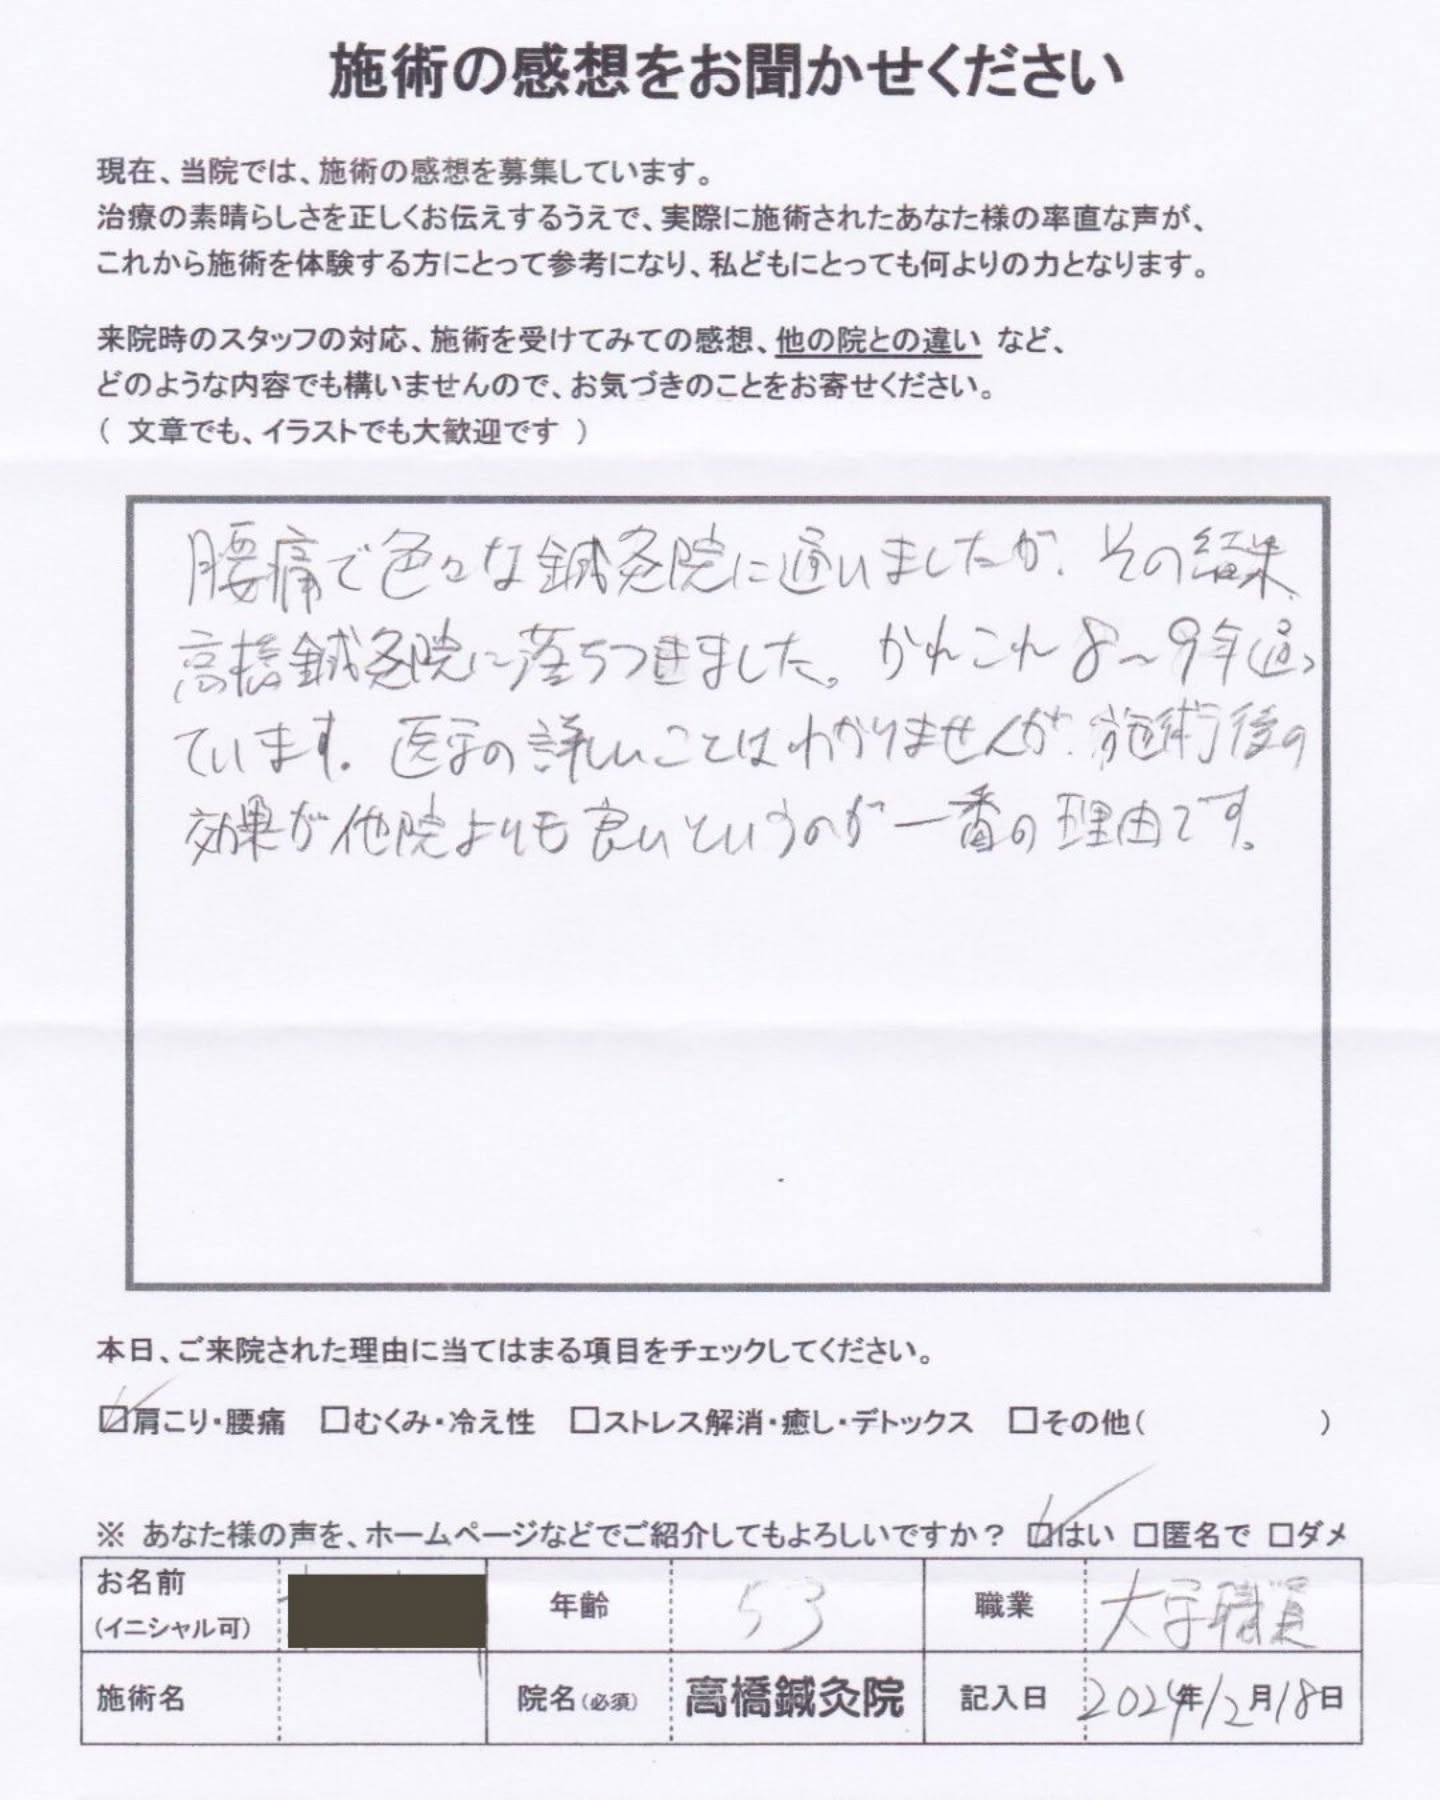 施術の感想をお聞かせください
現在、当院では、施術の感想を募集しています。
治療の素晴らしさを正しくお伝えするうえで、実際に施術されたあなた様の率直な声が、
これから施術を体験する方にとって参考になり、私どもにとっても何よりの力となります。
来院時のスタッフの対応、施術を受けてみての感想、他の院との違い など、
どのような内容でも構いませんので、お気づきのことをお寄せください。
( 文章でも、イラストでも大歓迎です )
腰痛で色々な鍼灸院に通いましたが、その結果、
高橋鍼灸院に落ちつきました。かれこれ8〜9年通っ
ています。医学の詳しいことはわかりませんが、施術後の
効果が他院よりも良いというのが一番の理由です。
本日、ご来院された理由に当てはまる項目をチェックしてください。
☑肩こり・腰痛 □むくみ・冷え性 □ストレス解消・癒し・デトックス □その他( )
※ あなた様の声を、ホームページなどでご紹介してもよろしいですか? ☑はい □匿名で □ダメ
お名前 (イニシャル可) 年齢 53 職業 大学職員
施術名 院名(必須) 高橋鍼灸院 記入日 2024年12月18日